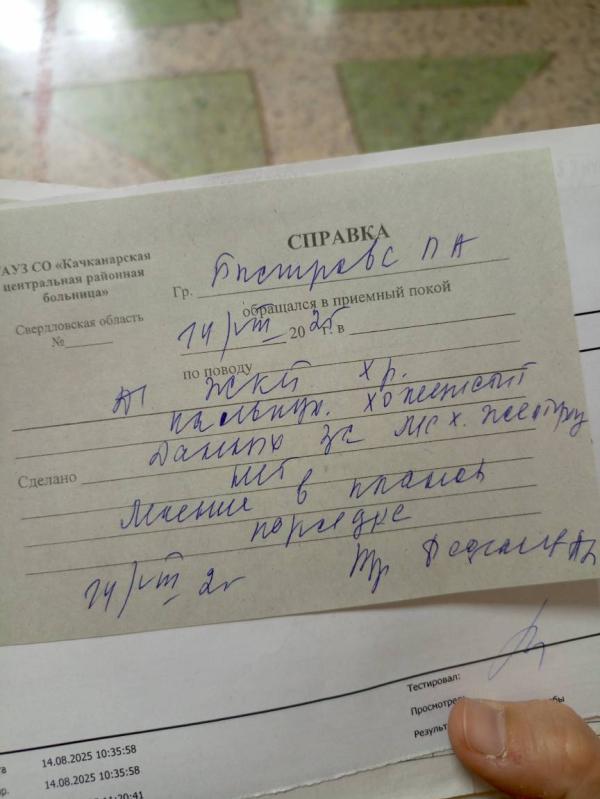 ГАУЗ СО «Качканарская
центральная районная
больница»
Свердловская область
№
СПРАВКА
Гр. П А
обращался в приемный покой
14/VIII 20 25 г. в
по поводу
ЖКБ. хр.
калькул. холецистит
Сделано Данных за мех. желтуху
нет
Лечение в плановом
порядке
14/VIII 25
Тестировал:
Просмотрел
Результ
14.08.2025 10:35:58
14.08.2025 10:35:58
11:20:41